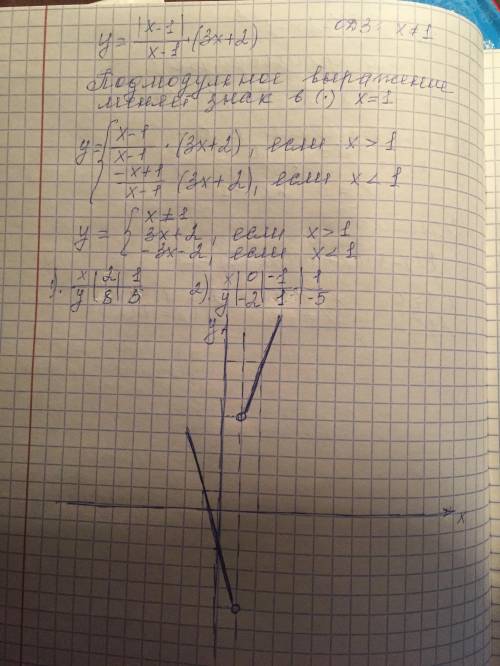 y = |x-1|/(x-1) · (3x+2)   ОДЗ: x≠1
Подмодульное выражение
меняет знак в (·) x=1
y = { (x-1)/(x-1) · (3x+2), если x > 1
(-x+1)/(x-1) (3x+2), если x < 1
x≠1
y = { 3x+2, если x > 1
-3x-2, если x < 1
1). x | 2 | 1   2). x | 0 | -1 | 1
y | 8 | 5   y | -2 | 1 | -5
y
x